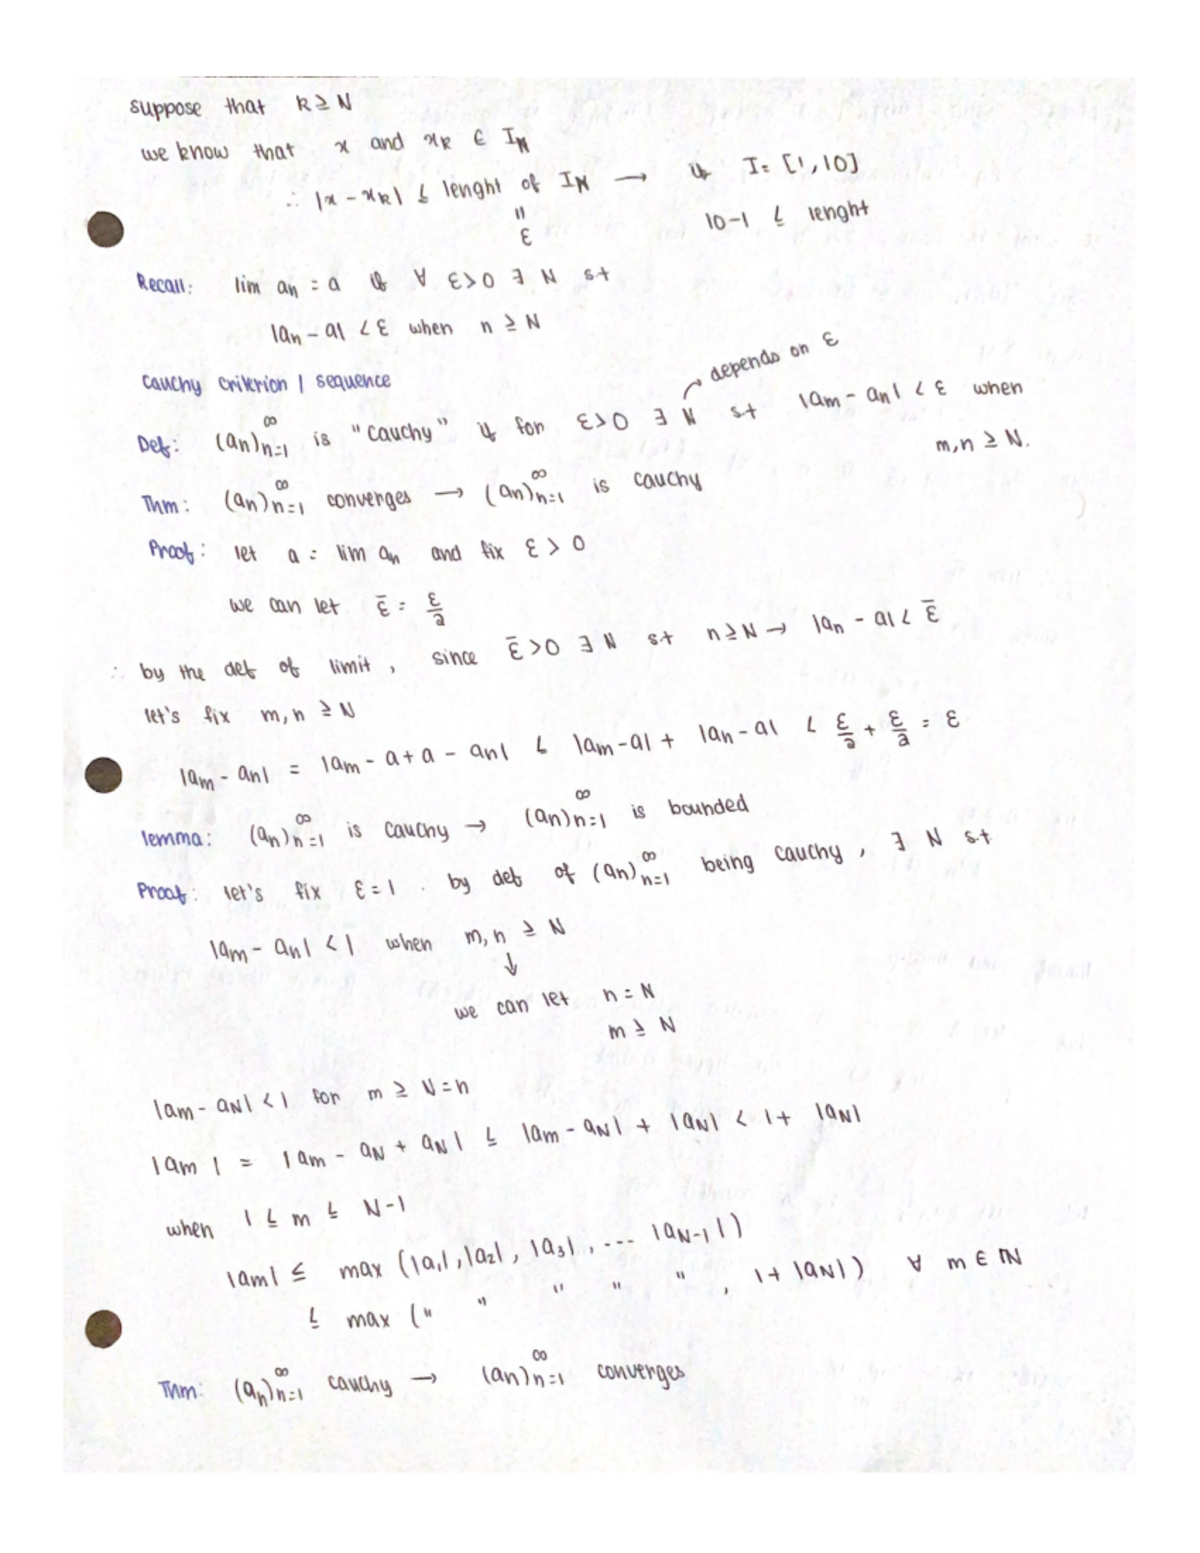 suppose that k ≥ N
we know that x and xₖ ∈ I_N
∴ |x - xₖ| ≤ lenght of I_N → if I = [1, 10]
" ε 10-1 ≤ lenght
Recall: lim aₙ = a if ∀ ε>0 ∃ N s+
|aₙ - a| < ε when n ≥ N
Cauchy Criterion / sequence
depends on ε
Def: (aₙ)ₙ₌₁^∞ is "cauchy" if for ε>0 ∃ N s+ |aₘ - aₙ| < ε when
m,n ≥ N.
Thm: (aₙ)ₙ₌₁^∞ converges → (aₙ)ₙ₌₁^∞ is cauchy
Proof: let a = lim aₙ and fix ε > 0
we can let ε̄ = ε/2
∴ by the def of limit, since ε̄ >0 ∃ N s+ n≥N → |aₙ - a| < ε̄
let's fix m,n ≥ N
|aₘ - aₙ| = |aₘ - a + a - aₙ| ≤ |aₘ-a| + |aₙ-a| < ε/2 + ε/2 = ε
lemma: (aₙ)ₙ₌₁^∞ is cauchy → (aₙ)ₙ₌₁^∞ is bounded
Proof: let's fix ε=1. by def of (aₙ)ₙ₌₁^∞ being cauchy, ∃ N s+
|aₘ - aₙ| < 1 when m,n ≥ N
↓
we can let n = N
m ≥ N
|aₘ - a_N| < 1 for m ≥ N=n
|aₘ| = |aₘ - a_N + a_N| ≤ |aₘ - a_N| + |a_N| < 1 + |a_N|
when 1 ≤ m ≤ N-1
|aₘ| ≤ max (|a₁|,|a₂|, |a₃|, ... |a_N-1|)
≤ max (" " " " ", 1 + |a_N|) ∀ m ∈ ℕ
Thm: (aₙ)ₙ₌₁^∞ cauchy → (aₙ)ₙ₌₁^∞ converges